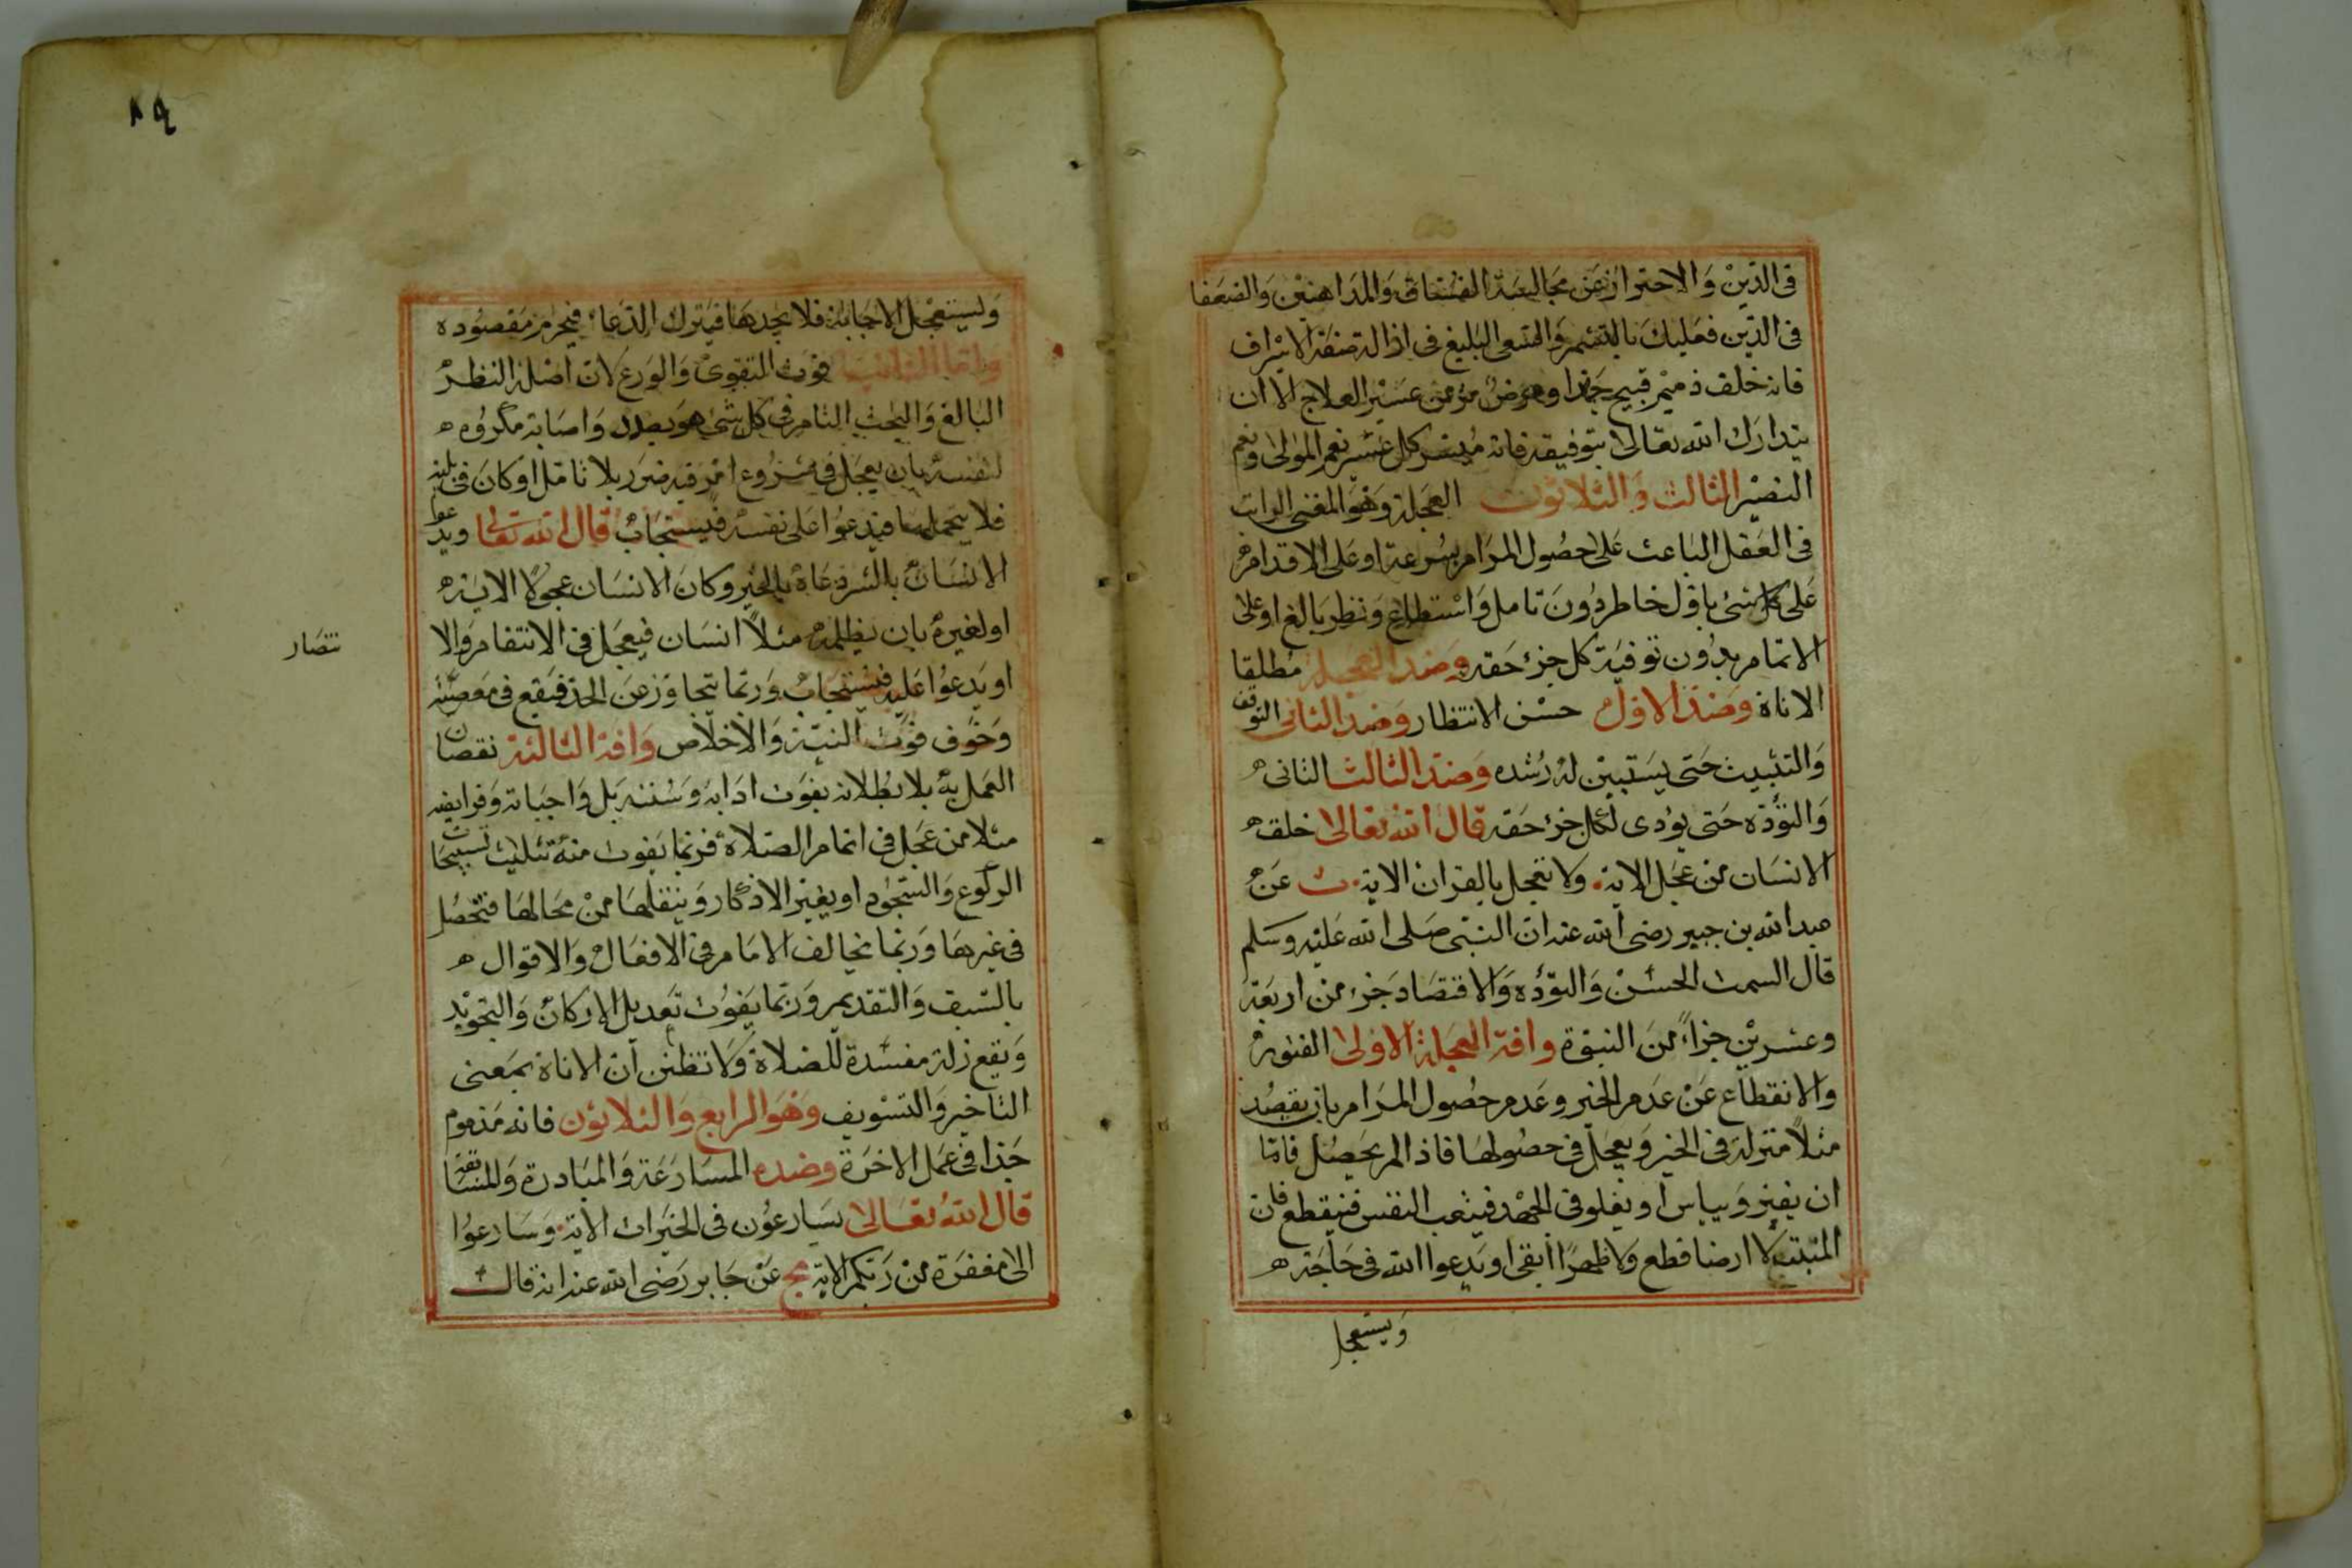 فى الدين والاحتراز عن مجالسة الفساق والمداهنين والضعفا
فى الدين فعليك بالتشمر والسعى البليغ فى ازالة صفة الاسراف
فانه خلف ذميم قبيح جدا ومرض مزمن عسير العلاج الا ان
يتدارك الله تعالى بتوفيقه فانه ميسر كل عسير نعم المولى ونعم
النصير الثالث والثلاثون العجلة وهو المعنى الراتب
فى العقل الباعث على حصول المرام بسرعة او على الاقدام
على كل شئ باول خاطر دون تامل واستطلاع ونظر بالغ او على
الاتمام بدون توفية كل جزء حقه وضد العجلة مطلقا
الاناة وضد الاول حسن الانتظار وضد الثانى التوقف
والتثبيت حتى يستبين له رشده وضد الثالث الثانى
والتؤدة حتى يؤدى لكل جزء حقه قال الله تعالى خلق
الانسان من عجل الاية ولا تعجل بالقران الاية ت عن
عبد الله بن جبير رضى الله عنه ان النبى صلى الله عليه وسلم
قال السمت الحسن والتؤدة والاقتصاد جزء من اربعة
وعشرين جزاء من النبوة وافة العجلة الاولى الفتور
والانقطاع عن عدم الخير وعدم حصول المرام بان يقصد
مثلا منزلة فى الخير ويعجل فى حصولها فاذا لم يحصل فاما
ان يفتر وييأس او يغلو فى الجهد فيتعب النفس فينقطع فان
المنبت لا ارضا قطع ولا ظهرا ابقى او يدعوا الله فى حاجة
ويستعجل
٨٩
ويستعجل الاجابة فلا يجدها فيترك الدعاء فيحرم مقصوده
واما الثانية فوت التقوى والورع لان اصله النظر
البالغ والبحث التام فى كل شئ هو بصدد واصابة مكروه
لنفسه بان يعجل فى شروع امر فيه ضرر بلا تامل او كان فى بلية
فلا يتحملها فيدعوا على نفسه فيستجاب قال الله تعالى ويدعوا
الانسان بالشر دعاه بالخير وكان الانسان عجولا الاية
او لغيره بان يظلمه مثلا انسان فيعجل فى الانتقام والا
نتصار
او يدعوا عليه فيستجاب وربما يتجاوز عن الحد فيقع فى معصية
وخوف فوت النية والاخلاص وافة الثالثة نقصان
العمل به بلا بطلانه بفوت ادابه وسننه بل واجباته وفرايضه
مثلا من عجل فى اتمام الصلاة فربما يفوت منه تثليث تسبيحات
الركوع والسجود او يغير الاذكار وينقلها من محالها فتحصل
فى غيرها وربما يخالف الامام فى الافعال والاقوال
بالسبق والتقديم وربما يفوت تعديل الاركان والتجويد
ويقع زلة مفسدة للصلاة ولا تظنن ان الاناة بمعنى
التاخير والتسويف وهو الرابع والثلاثون فانه مذموم
جدا فى عمل الاخرة وضده المسارعة والمبادرة والمسابقة
قال الله تعالى يسارعون فى الخيرات الاية وسارعوا
الى مغفرة من ربكم الاية مج عن جابر رضى الله عنه انه قال